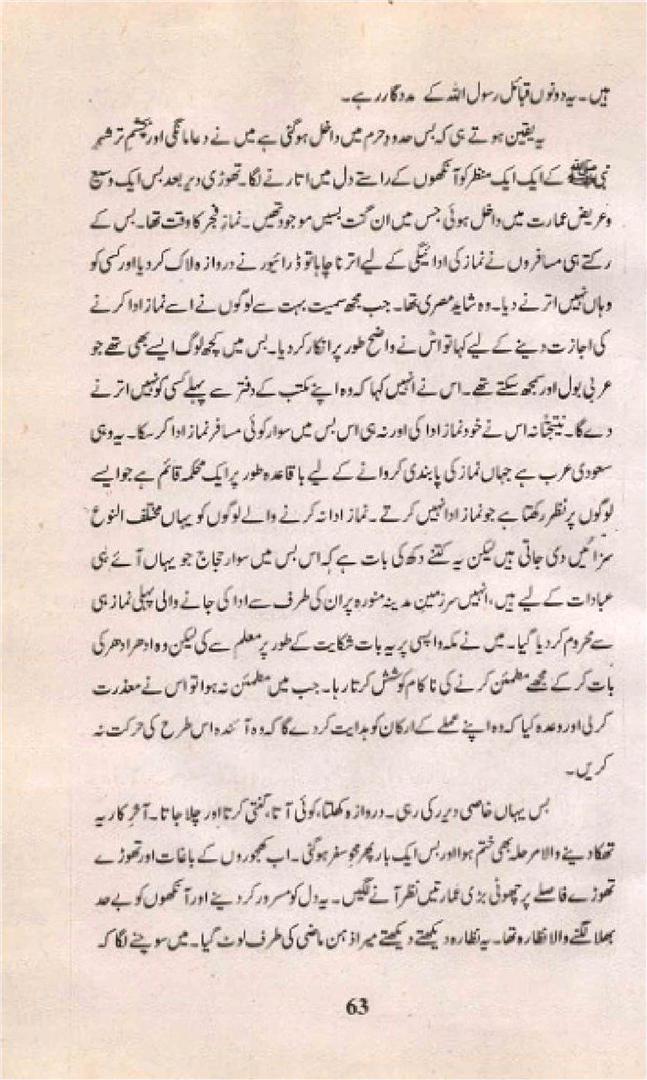 ہیں۔ یہ دونوں قبائل رسول اللہ کے مددگار رہے۔
یہ یقین ہوتے ہی کہ بس حدودِ حرم میں داخل ہوگئی ہے میں نے دعا مانگی اور بچشمِ تر شہرِ
نبی ﷺ کے ایک ایک منظر کو آنکھوں کے راستے دل میں اتارنے لگا۔ تھوڑی دیر بعد بس ایک وسیع
وعریض عمارت میں داخل ہوئی جس میں ان گنت بسیں موجود تھیں۔ نمازِ فجر کا وقت تھا۔ بس کے
رکتے ہی مسافروں نے نماز کی ادائیگی کے لیے اترنا چاہا تو ڈرائیور نے دروازہ لاک کر دیا اور کسی کو
وہاں نہیں اترنے دیا۔ وہ شاید مصری تھا۔ جب مجھ سمیت بہت سے لوگوں نے اسے نماز ادا کرنے
کی اجازت دینے کے لیے کہا تو اس نے واضح طور پر انکار کر دیا۔ بس میں کچھ لوگ ایسے بھی تھے جو
عربی بول اور سمجھ سکتے تھے۔ اس نے انہیں کہا کہ وہ اپنے مکتب کے دفتر سے پہلے کسی کو نہیں اترنے
دے گا۔ نتیجتاً نہ اس نے خود نماز ادا کی اور نہ ہی اس بس میں سوار کوئی مسافر نماز ادا کر سکا۔ یہ وہی
سعودی عرب ہے جہاں نماز کی پابندی کروانے کے لیے باقاعدہ طور پر ایک محکمہ قائم ہے جو ایسے
لوگوں پر نظر رکھتا ہے جو نماز ادا نہیں کرتے۔ نماز ادا نہ کرنے والے لوگوں کو یہاں مختلف النوع
سزائیں دی جاتی ہیں لیکن یہ کتنے دکھ کی بات ہے کہ اس بس میں سوار حجاج جو یہاں آئے ہی
عبادات کے لیے ہیں، انہیں سرزمین مدینہ منورہ پر ان کی طرف سے ادا کی جانے والی پہلی نماز ہی
سے محروم کر دیا گیا۔ میں نے مکہ واپسی پر یہ بات شکایت کے طور پر معلم سے کی لیکن وہ ادھر ادھر کی
بات کر کے مجھے مطمئن کرنے کی ناکام کوشش کرتا رہا۔ جب میں مطمئن نہ ہوا تو اس نے معذرت
کر لی اور وعدہ کیا کہ وہ اپنے عملے کے ارکان کو ہدایت کر دے گا کہ وہ آئندہ اس طرح کی حرکت نہ
کریں۔
بس یہاں خاصی دیر رکی رہی۔ دروازہ کھلتا، کوئی آتا، گنتی کرتا اور چلا جاتا۔ آخر کار یہ
تھکا دینے والا مرحلہ بھی ختم ہوا اور بس ایک بار پھر محوِ سفر ہوگئی۔ اب کھجوروں کے باغات اور تھوڑے
تھوڑے فاصلے پر چھوٹی بڑی عمارتیں نظر آنے لگیں۔ یہ دل کو مسرور کر دینے اور آنکھوں کو بے حد
بھلا لگنے والا نظارہ تھا۔ یہ نظارہ دیکھتے دیکھتے میرا ذہن ماضی کی طرف لوٹ گیا۔ میں سوچنے لگا کہ
63